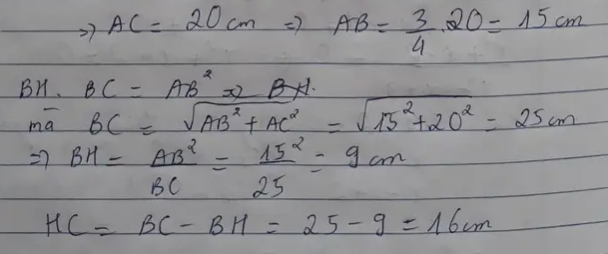 => AC = 20 cm => AB = 3/4 . 20 = 15 cm
BH. BC = AB² => BH.
mà BC = √(AB² + AC²) = √(15² + 20²) = 25 cm
=> BH = AB²/BC = 15²/25 = 9 cm
HC = BC - BH = 25 - 9 = 16 cm